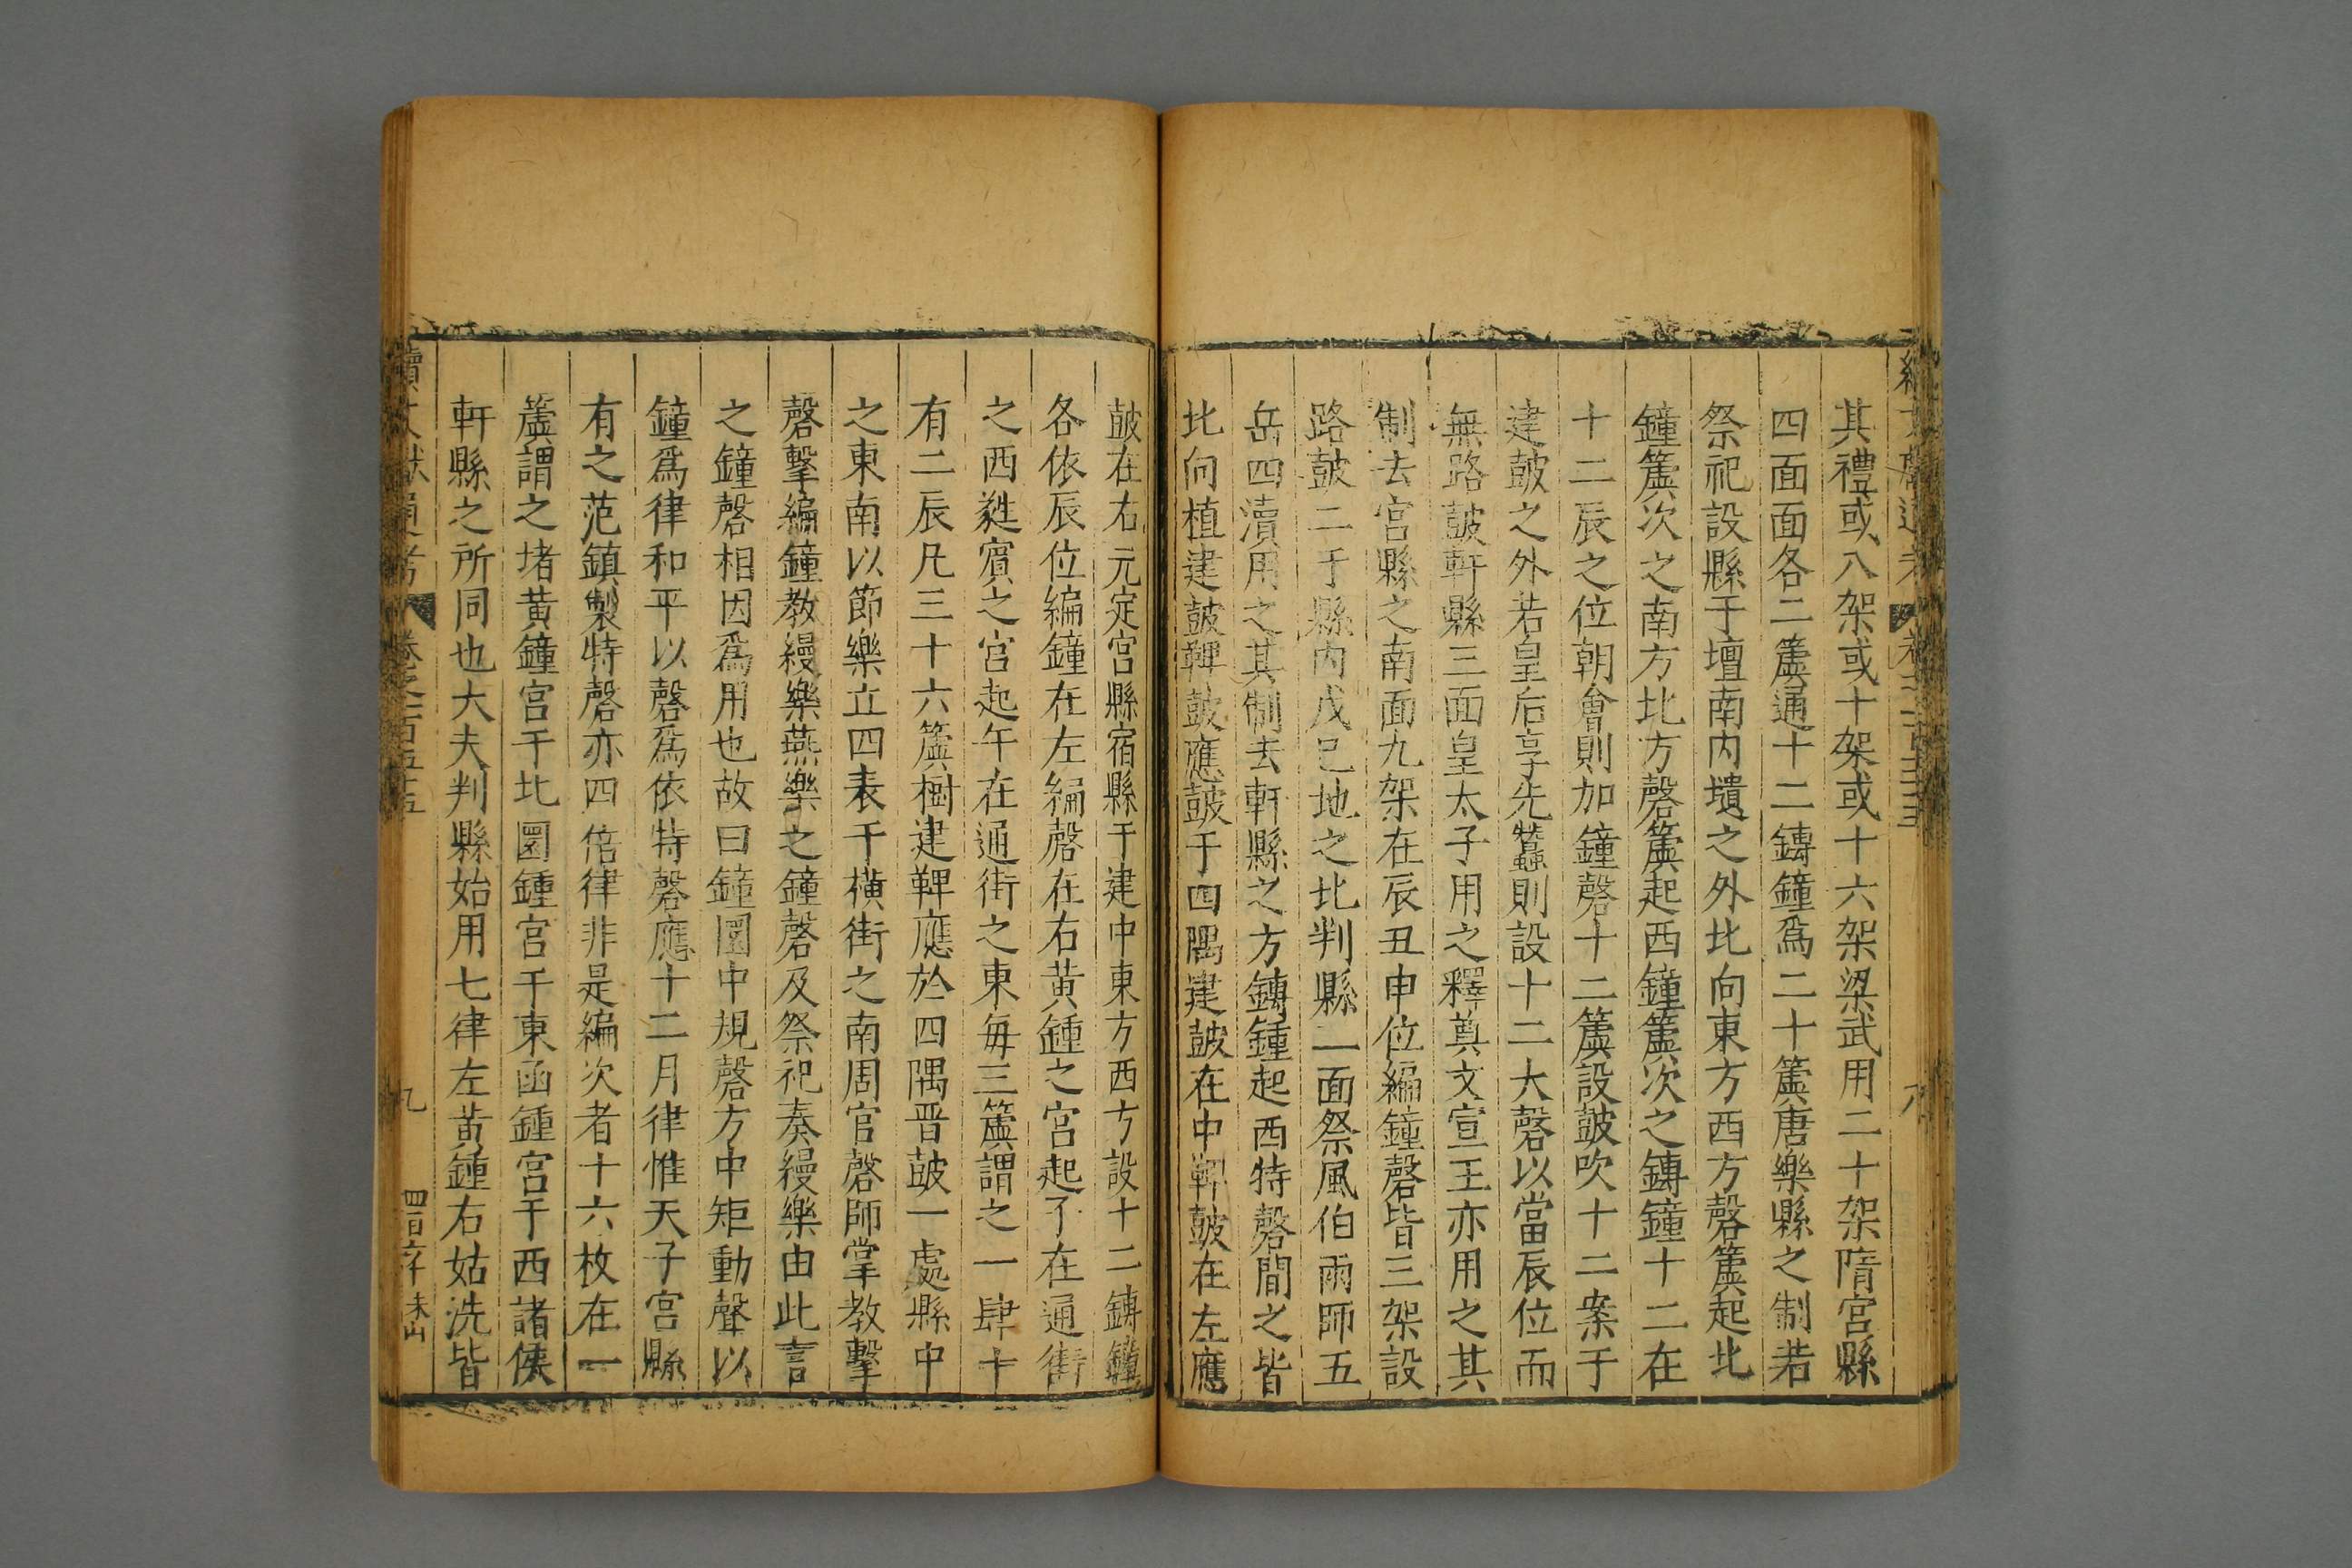 其禮或八架或十架或十六架梁武用二十架隋宮縣
四面面各二簴通十二鎛鐘爲二十簴唐樂縣之制若
祭祀設縣于壇南内壝之外北向東方西方磬簴起北
鐘簴次之南方北方磬簴起西鐘簴次之鎛鐘十二在
十二辰之位朝會則加鐘磬十二簴設皷吹十二案于
建皷之外若皇后享先蠶則設十二大磬以當辰位而
無路皷軒縣三面皇太子用之釋奠文宣王亦用之其
制去宮縣之南面九架在辰丑申位編鐘磬皆三架設
路皷二于縣内戊巳地之北判縣二面祭風伯雨師五
岳四瀆用之其制去軒縣之方鎛鍾起西特磬間之皆
北向植建皷鞞皷應皷于四隅建皷在中鞞皷在左應
皷在右元定宮縣宿縣于建中東方西方設十二鎛鐘
各依辰位編鐘在左編磬在右黃鍾之宮起子在通街
之西蕤賓之宮起午在通街之東每三簴謂之一肆十
有二辰凡三十六簴樹建鞞應於四隅晋皷一處縣中
之東南以節樂立四表于橫街之南周官磬師掌教擊
磬擊編鐘教縵樂燕樂之鐘磬及祭祀奏縵樂由此言
之鐘磬相因爲用也故曰鐘圜中規磬方中矩動聲以
鐘爲律和平以磬爲依特磬應十二月律惟天子宮縣
有之范鎮製特磬亦四倍律非是編次者十六枚在一
簴謂之堵黃鐘宮于北圜鍾宮于東函鍾宮于西諸侯
軒縣之所同也大夫判縣始用七律左黃鍾右姑洗皆
續文獻通考 卷之一百五十五 九